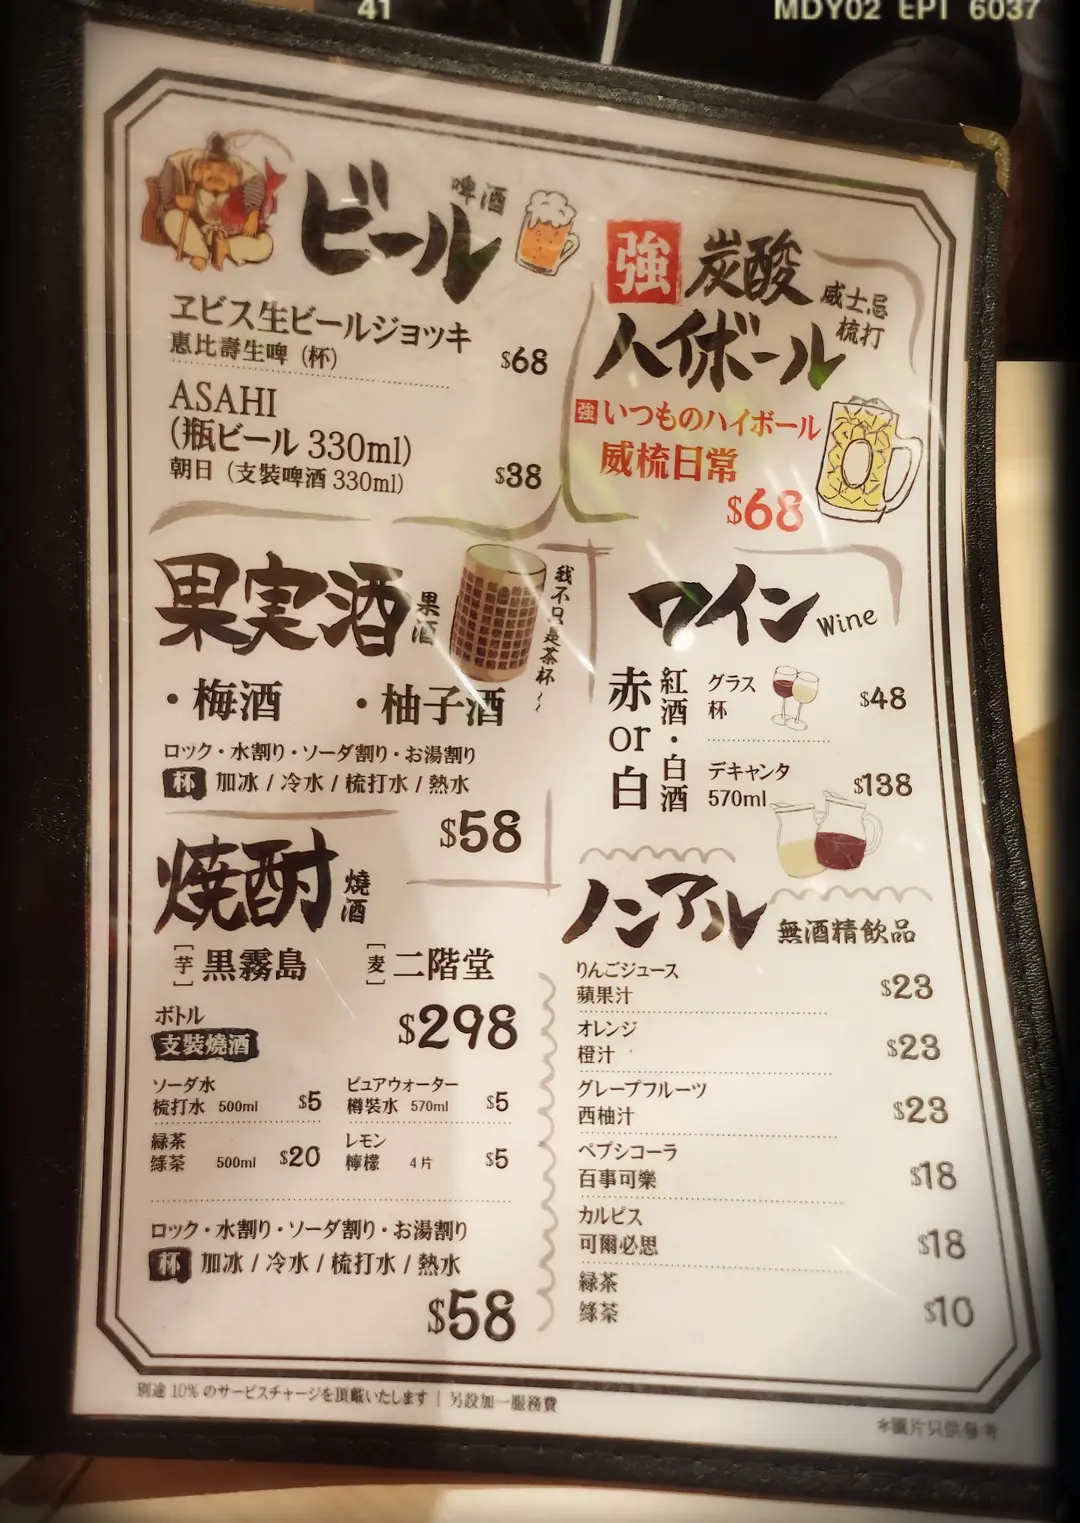 41
MDY02 EPI 6037
ビール
啤酒
ヱビス生ビールジョッキ
恵比壽生啤（杯）
$68
ASAHI
(瓶ビール 330ml)
朝日（支裝啤酒 330ml）
$38
強 炭酸
ハイボール
威士忌
梳打
強 いつものハイボール
威梳日常
$68
果実酒
果酒
我不只是茶杯～
・梅酒 ・柚子酒
ロック・水割り・ソーダ割り・お湯割り
杯 加冰 / 冷水 / 梳打水 / 熱水
$58
ワイン Wine
赤or白
紅酒・白酒
グラス
杯
$48
デキャンタ
570ml
$138
焼酎
燒酒
[芋] 黒霧島 [麦] 二階堂
ボトル
支裝燒酒
$298
ソーダ水
梳打水 500ml $5
ピュアウォーター
樽裝水 570ml $5
緑茶
綠茶 500ml $20
レモン
檸檬 4片 $5
ロック・水割り・ソーダ割り・お湯割り
杯 加冰 / 冷水 / 梳打水 / 熱水
$58
ノンアル 無酒精飲品
りんごジュース
蘋果汁
$23
オレンジ
橙汁
$23
グレープフルーツ
西柚汁
$23
ペプシコーラ
百事可樂
$18
カルピス
可爾必思
$18
緑茶
綠茶
$10
別途 10% のサービスチャージを頂戴いたします | 另設加一服務費
*圖片只供參考